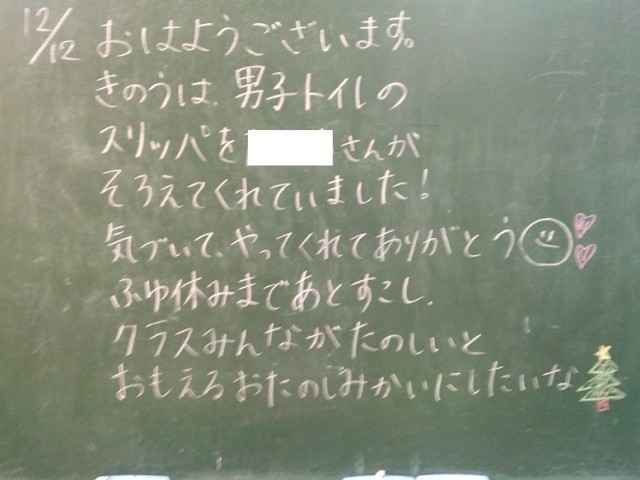 12/12 おはようございます。
きのうは、男子トイレの
スリッパを さんが
そろえてくれていました!
気づいて、やってくれてありがとう
ふゆ休みまであとすこし、
クラスみんながたのしいと
おもえるおたのしみかいにしたいな